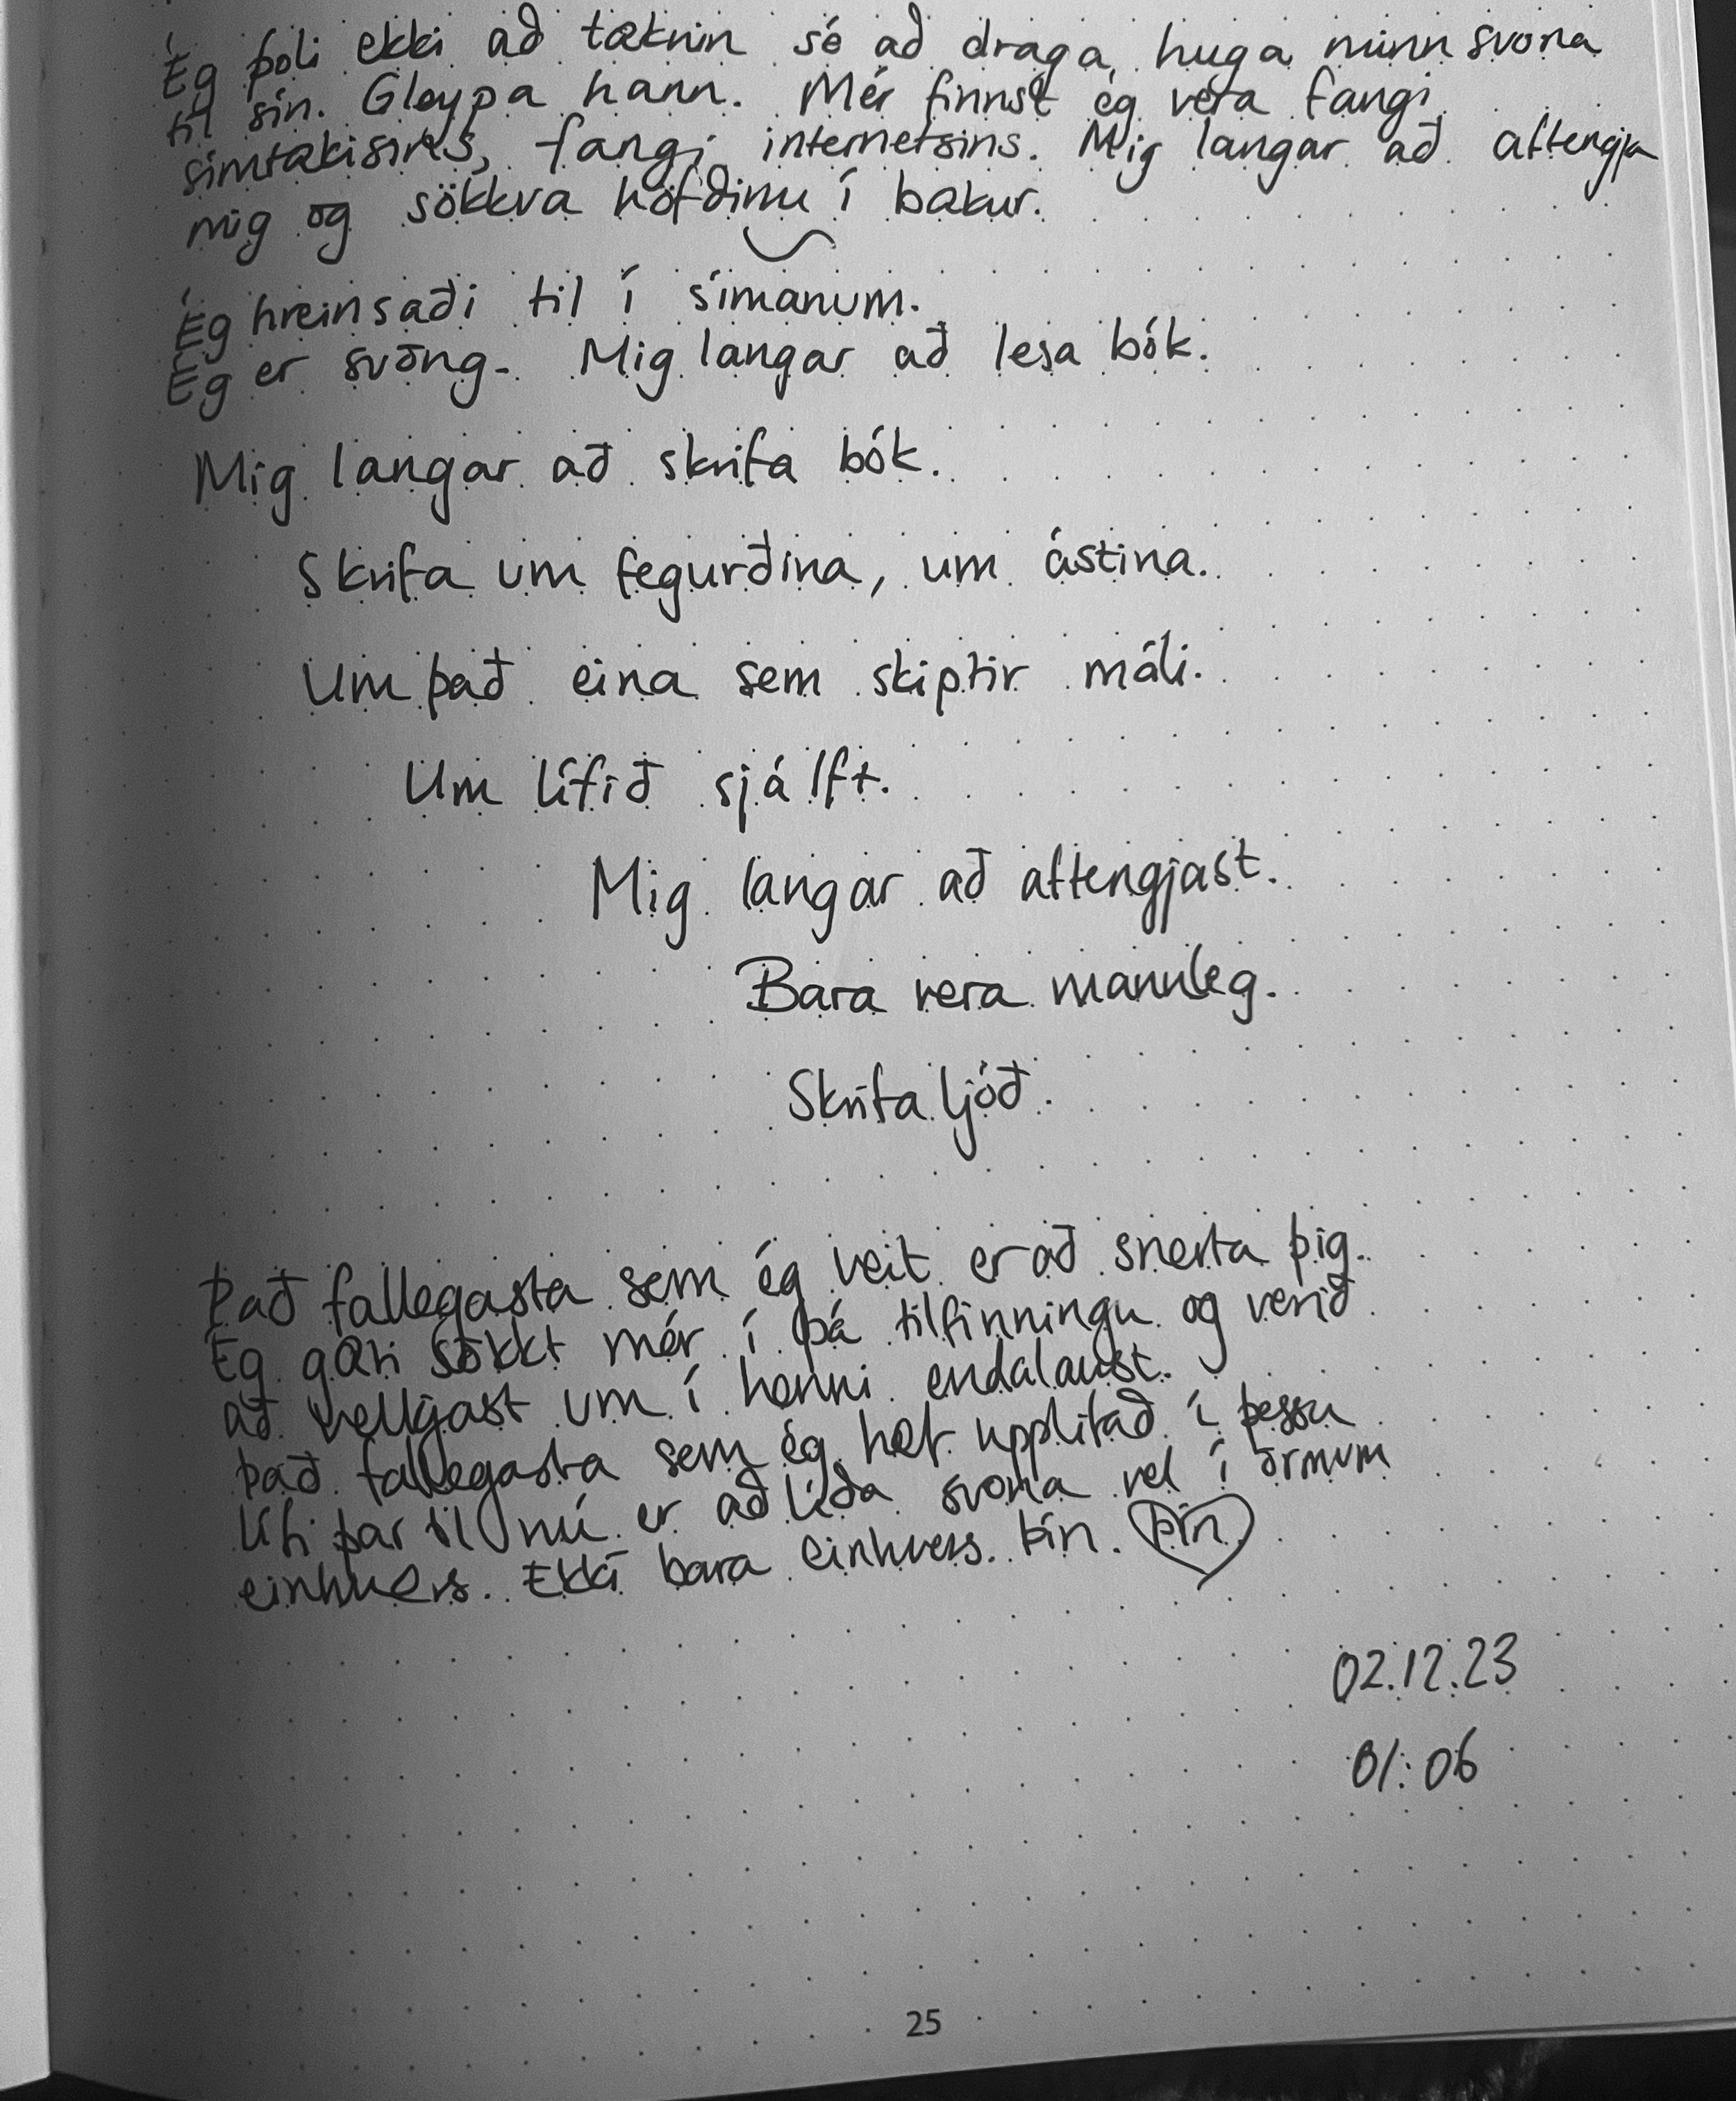 Ég þoli ekki að tæknin sé að draga huga minn svona
til sín. Gleypa hann. Mér finnst ég vera fangi
símtækisins, fangi internetsins. Mig langar að aftengja
mig og sökkva höfðinu í bækur.
Ég hreinsaði til í símanum.
Ég er svöng. Mig langar að lesa bók.
Mig langar að skrifa bók.
Skrifa um fegurðina, um ástina.
Um það eina sem skiptir máli.
Um lífið sjálft.
Mig langar að aftengjast.
Bara vera mannleg.
Skrifa ljóð.
Það fallegasta sem ég veit er að snerta þig.
Ég gæti sökkt mér í þá tilfinningu og verið
að velkjast um í henni endalaust.
Það fallegasta sem ég hef upplifað í þessu
lífi þar til nú er að líða svona vel í örmum
einhvers. Ekki bara einhvers. Þín. Þín.
02.12.23
01:06
25